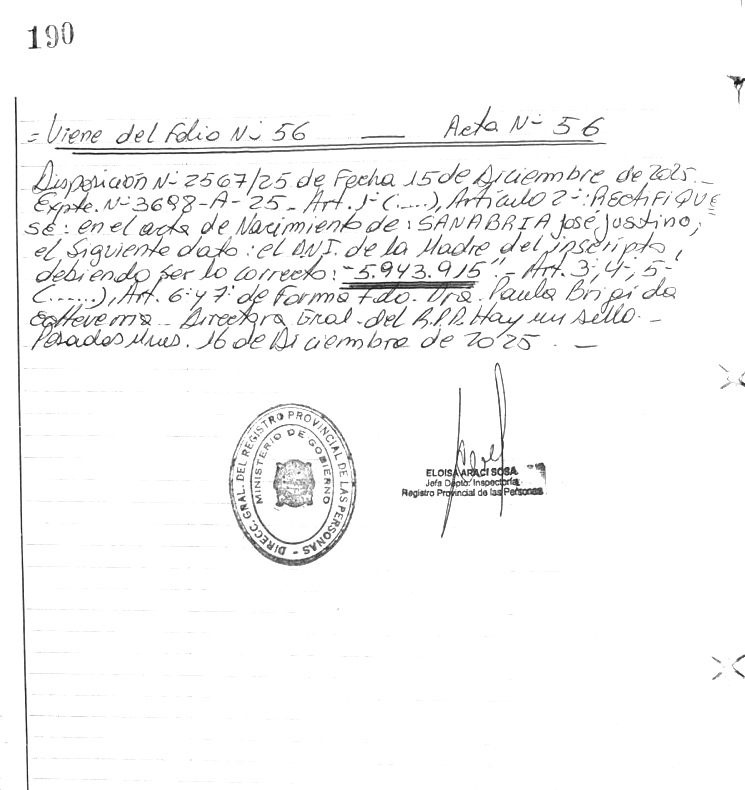 190
= Viene del Folio Nº 56 — Acta Nº 56
Disposición Nº 2567/25 de Fecha 15 de Diciembre de 2025._
Expte. Nº 3698-A-25_ Art. 1º (.....), Artículo 2º: RECTIFIQUE
se: en el acta de Nacimiento de: SANABRIA José Justino,
el siguiente dato: el DNI. de la Madre del inscripto,
debiendo ser lo correcto: "5.943.915"._ Art. 3, 4, 5
(......), Art. 6 y 7 de Forma Fdo. Dra. Paula Brigida
Directora Gral. del R.P.P. Hay un sello._
Posadas Mnes. 16 de Diciembre de 2025._
DIRECC. GRAL. DEL REGISTRO PROVINCIAL DE LAS PERSONAS -
MINISTERIO DE GOBIERNO
ELOISA ARACI SOSA
Jefa Dpto. Inspectoría
Registro Provincial de las Personas